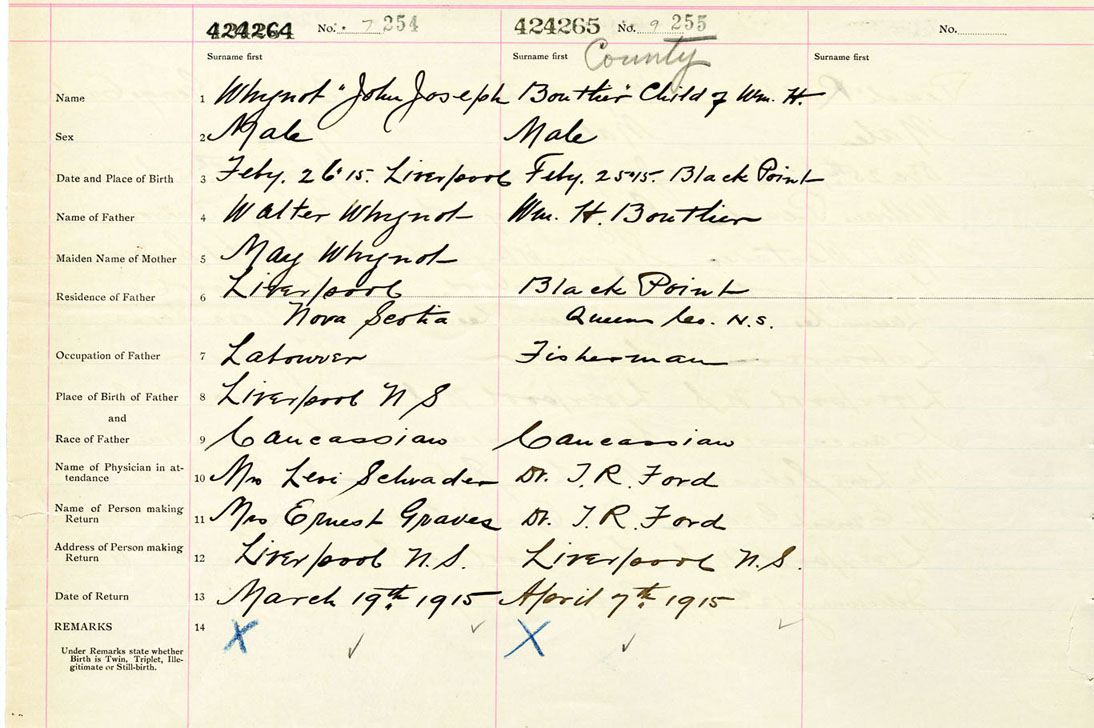 424264 No. 7 254 424265 No. 9 255 No.
Surname first Surname first County Surname first
Name 1 Whynot "John Joseph Bouthier" Child of Wm. H.
Sex 2 Male Male
Date and Place of Birth 3 Feby. 26·15. Liverpool Feby. 25·15. Black Point
Name of Father 4 Walter Whynot Wm. H. Bouthier
Maiden Name of Mother 5 May Whynot
Residence of Father 6 Liverpool Black Point
Nova Scotia Queens Co. N.S.
Occupation of Father 7 Labourer Fisherman
Place of Birth of Father 8 Liverpool N S
and
Race of Father 9 Caucassian Caucassian
Name of Physician in at-
tendance 10 Mrs Levi Schrader Dr. T. R. Ford
Name of Person making
Return 11 Mrs Ernest Graves Dr. T. R. Ford
Address of Person making
Return 12 Liverpool N.S. Liverpool N.S.
Date of Return 13 March 19th 1915 April 7th 1915
REMARKS 14 X X
Under Remarks state whether
Birth is Twin, Triplet, Ille-
gitimate or Still-birth.